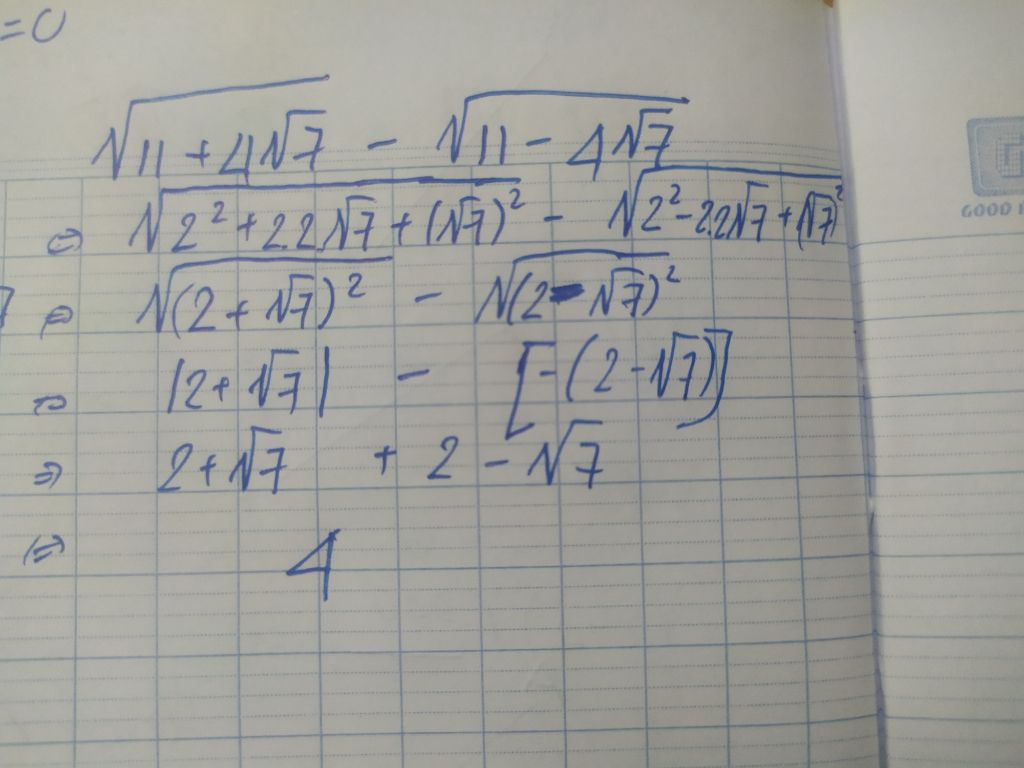 =0
√(11 + 4√7) - √(11 - 4√7)
⇔ √(2² + 2.2√7 + (√7)²) - √(2² - 2.2√7 + (√7)²)
⇔ √((2 + √7)²) - √((2 - √7)²)
⇔ |2 + √7| - [-(2 - √7)]
⇔ 2 + √7 + 2 - √7
⇔ 4
GOOD